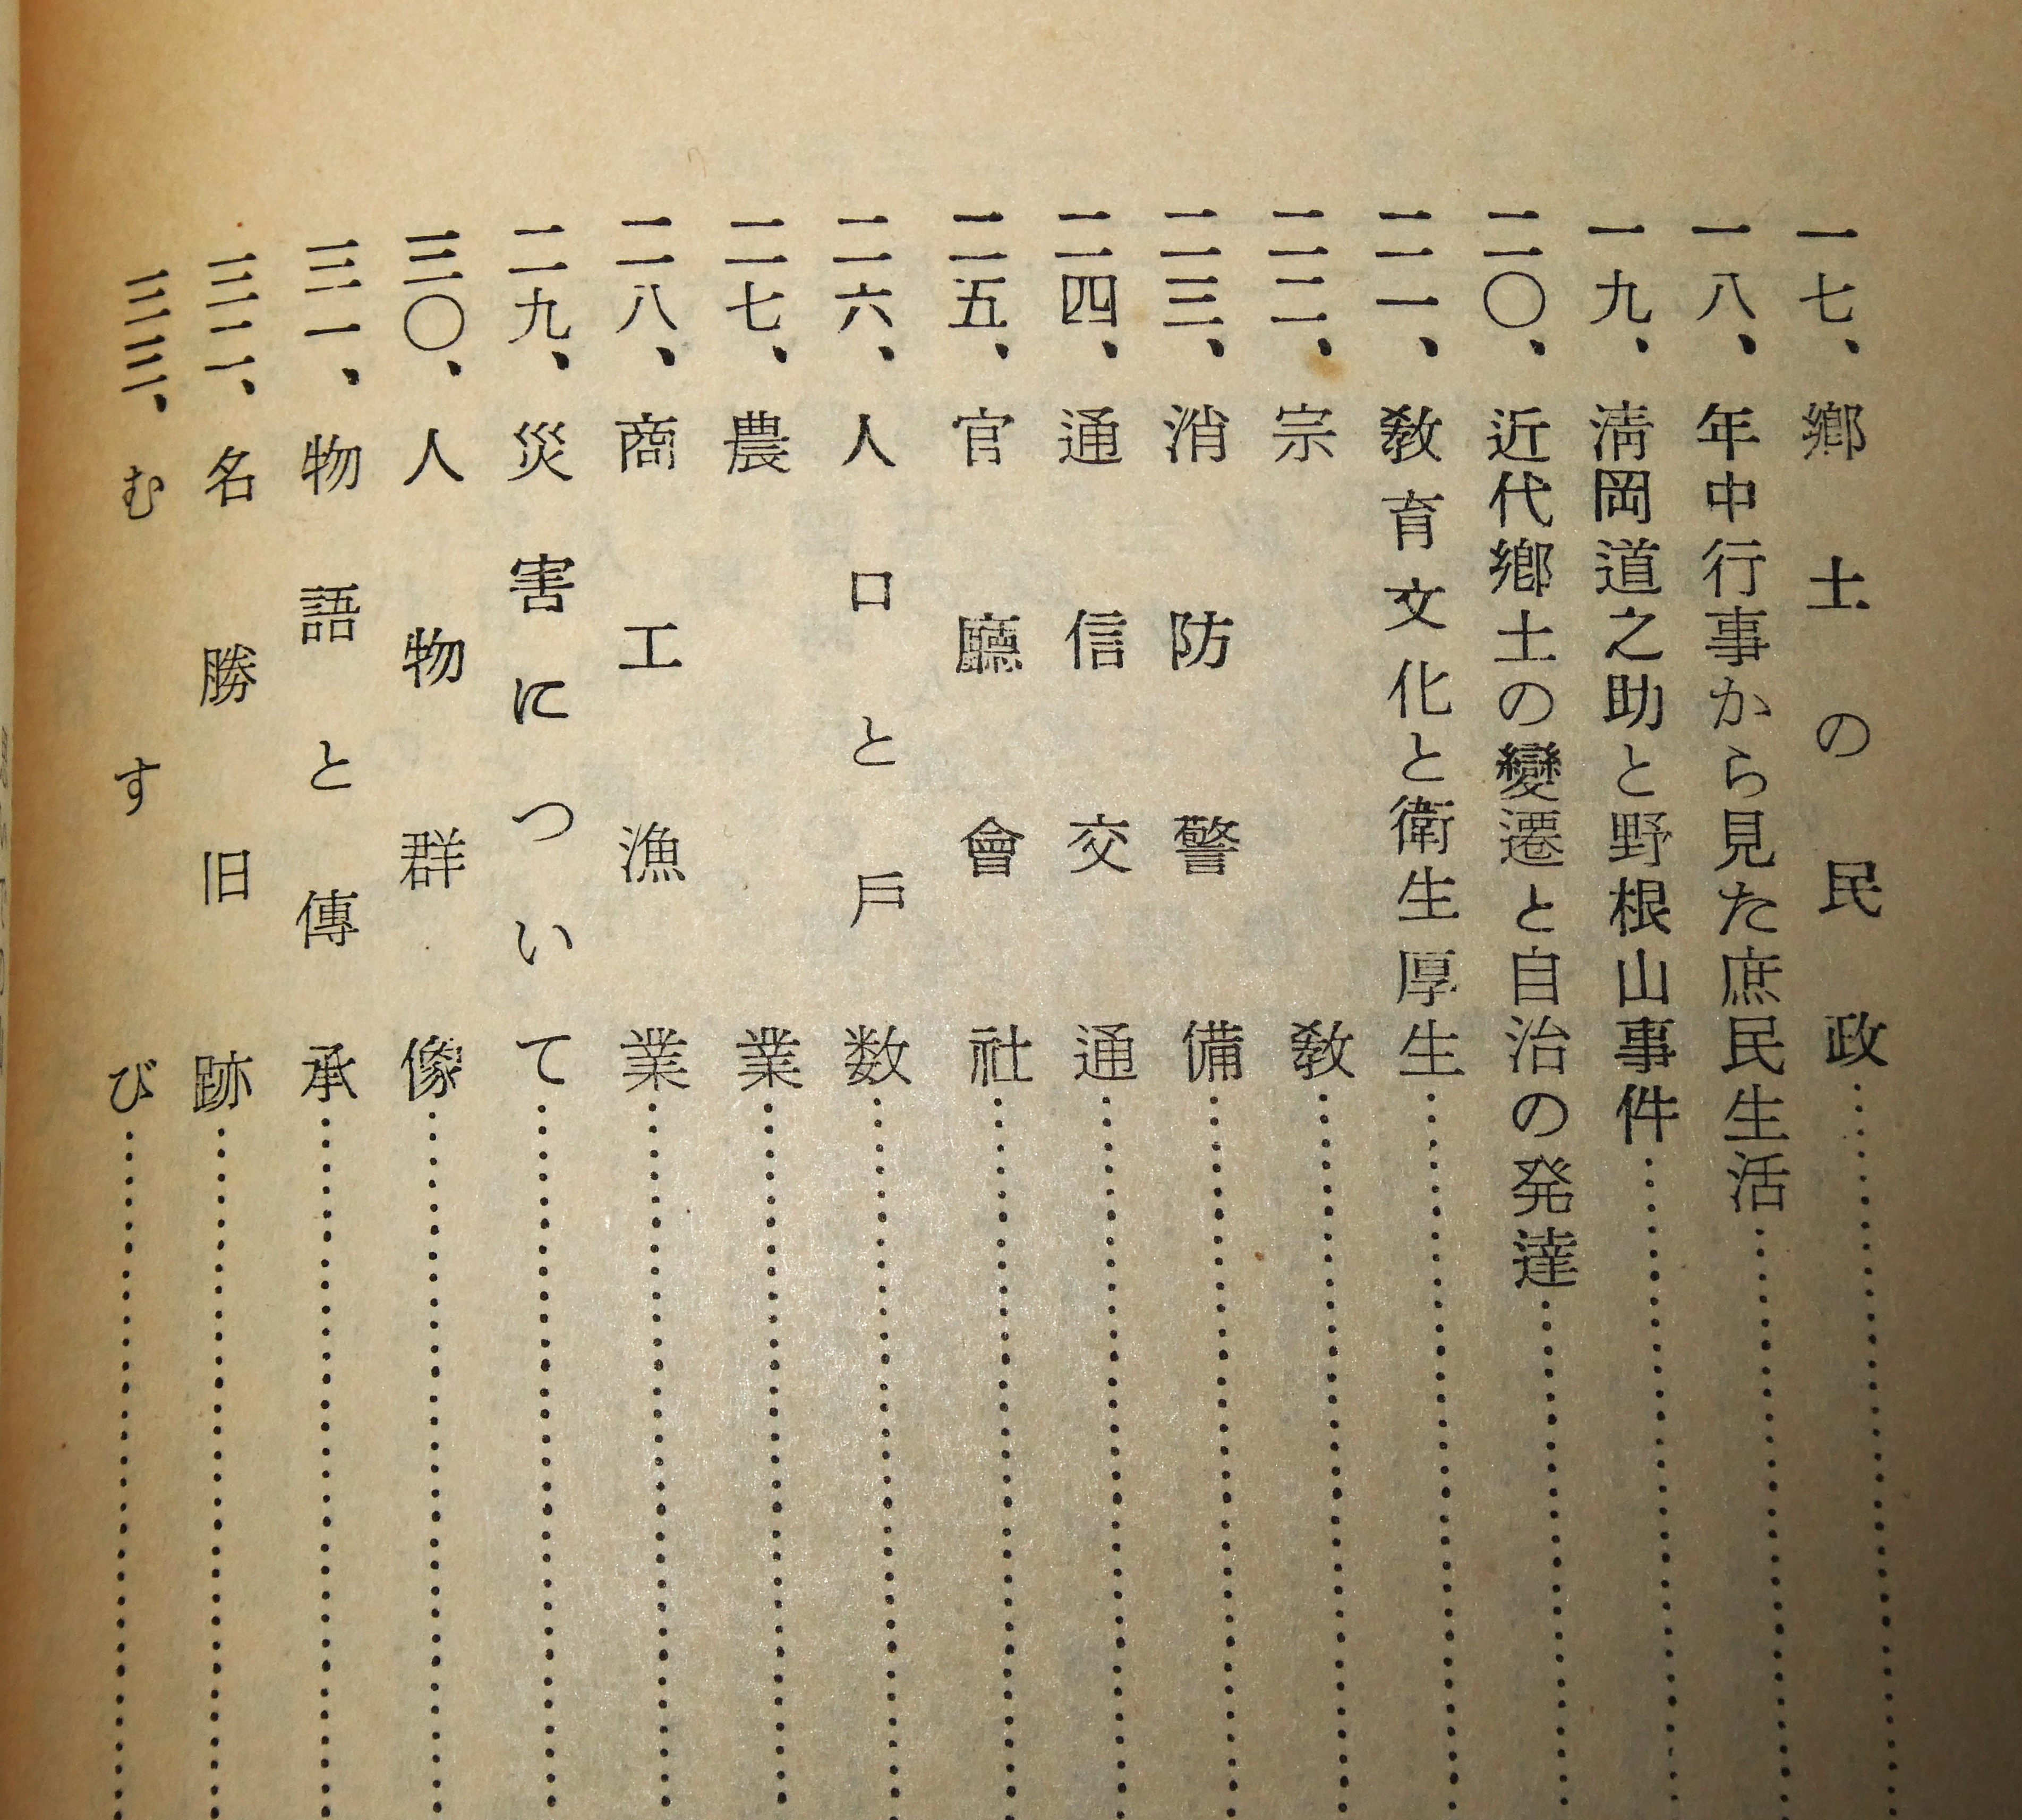 一七、郷土の民政
一八、年中行事から見た庶民生活
一九、淸岡道之助と野根山事件
二〇、近代郷土の變遷と自治の発達
二一、敎育文化と衛生厚生
二二、宗敎
二三、消防警備
二四、通信交通
二五、官廳會社
二六、人口と戶数
二七、農業
二八、商工漁業
二九、災害について
三〇、人物群像
三一、物語と傳承
三二、名勝旧跡
三三、むすび